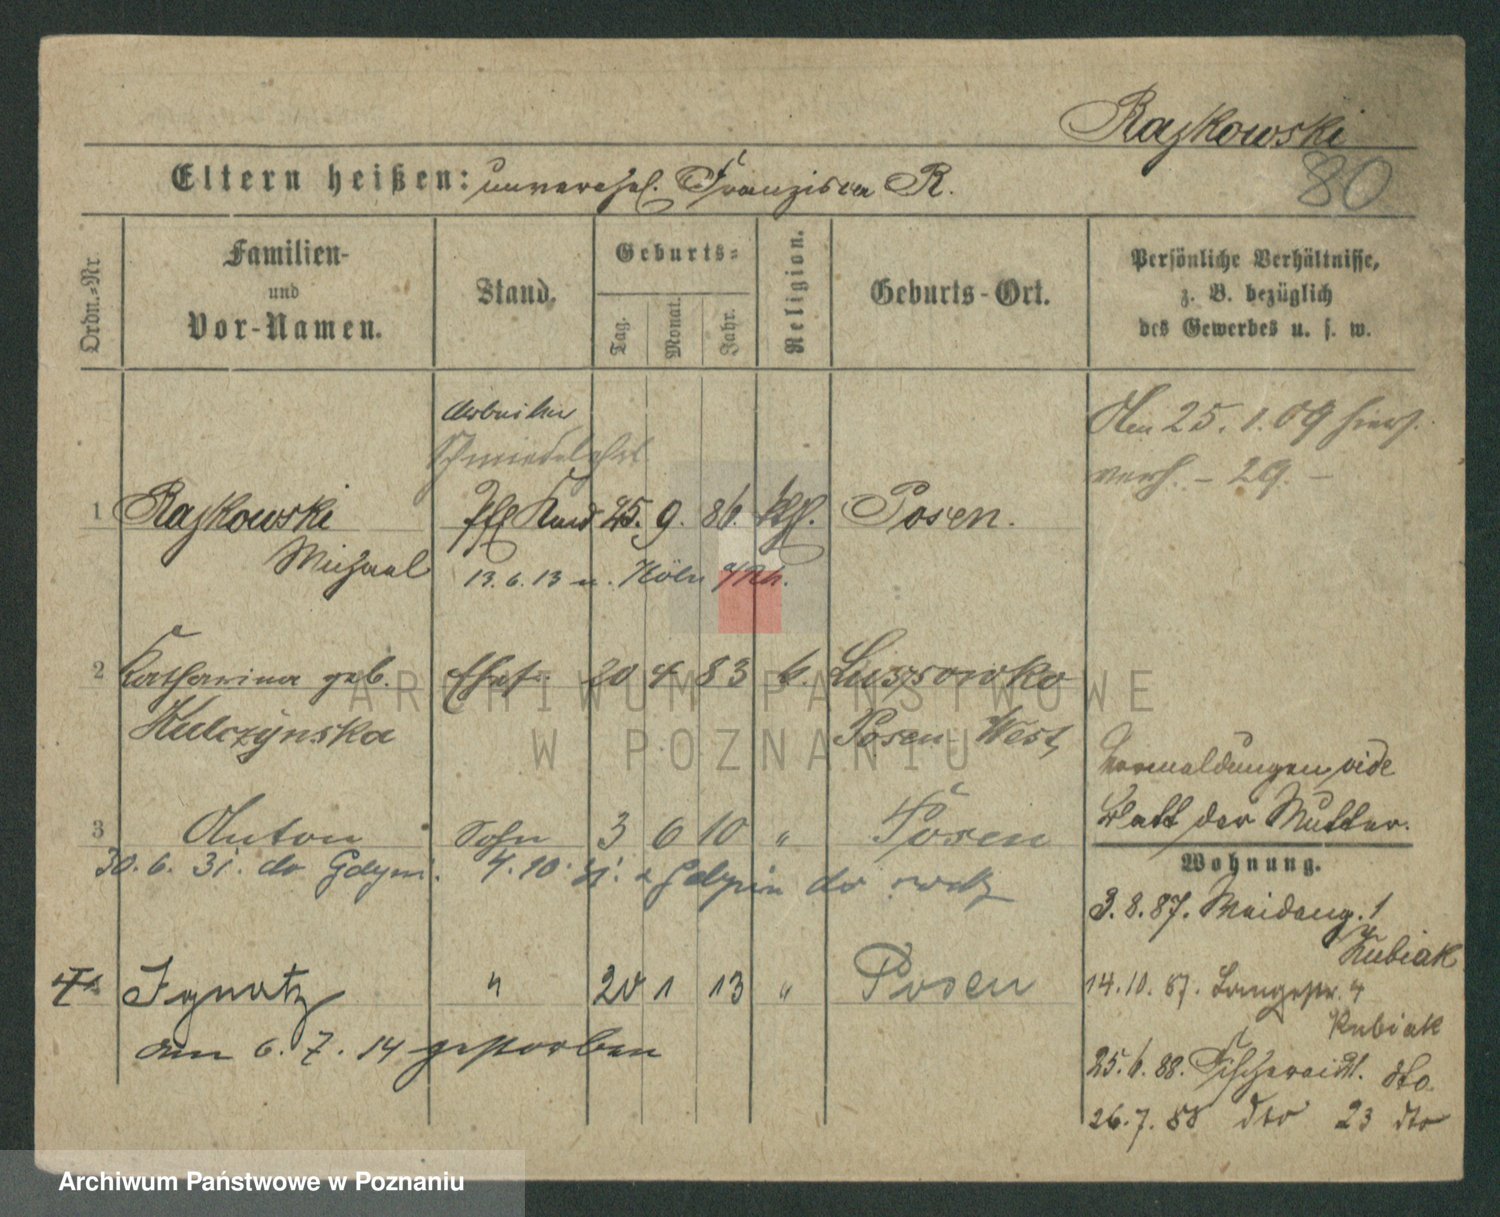 Rajkowski
80
Eltern heißen: unverehel. Franziska R.
Ordn.-Nr.
Familien- und Vor-Namen.
Stand.
Geburts-
Tag.
Monat.
Jahr.
Religion.
Geburts-Ort.
Persönliche Verhältnisse,
z. B. bezüglich
des Gewerbes u. s. w.
Arbeiter
Am 25.1.09 hier
verh. - 29. -
1 Rajkowski Kind 9. 86. Posen.
Michael 13.6.13 n. Köln a/Rh.
2 Katharina geb. Ehef. 20 4 83 k. Lussowko
Kulczynska Posen West
Vermeldungen vide
Blatt der Mutter.
3 Anton Sohn 3 6 10 " Posen
30.6.31. do Gdyni. 4.10.31. z Gdyni
Wohnung.
3.8.87. 1
Kubiak
4 Ignatz " 20 1 13 " Posen
am 6.7.14 gestorben
14.10.87. Langestr. 4
Kubiak
25.6.88. Fischerei dto
26.7.88 dto 23 dto
ARCHIWUM PAŃSTWOWE
W POZNANIU
Archiwum Państwowe w Poznaniu